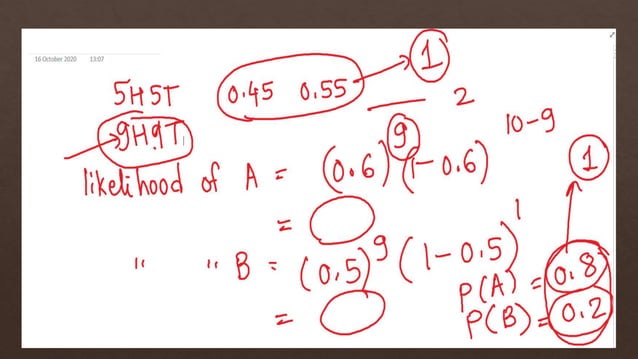 16 October 2020 13:07
5H5T 0.45 0.55 → 1
2
9H9T
9 10-9
likelihood of A = (0.6) (1-0.6) 1
=
" " B = (0.5)⁹ (1-0.5)¹
P(A) = 0.8
= P(B) = 0.2